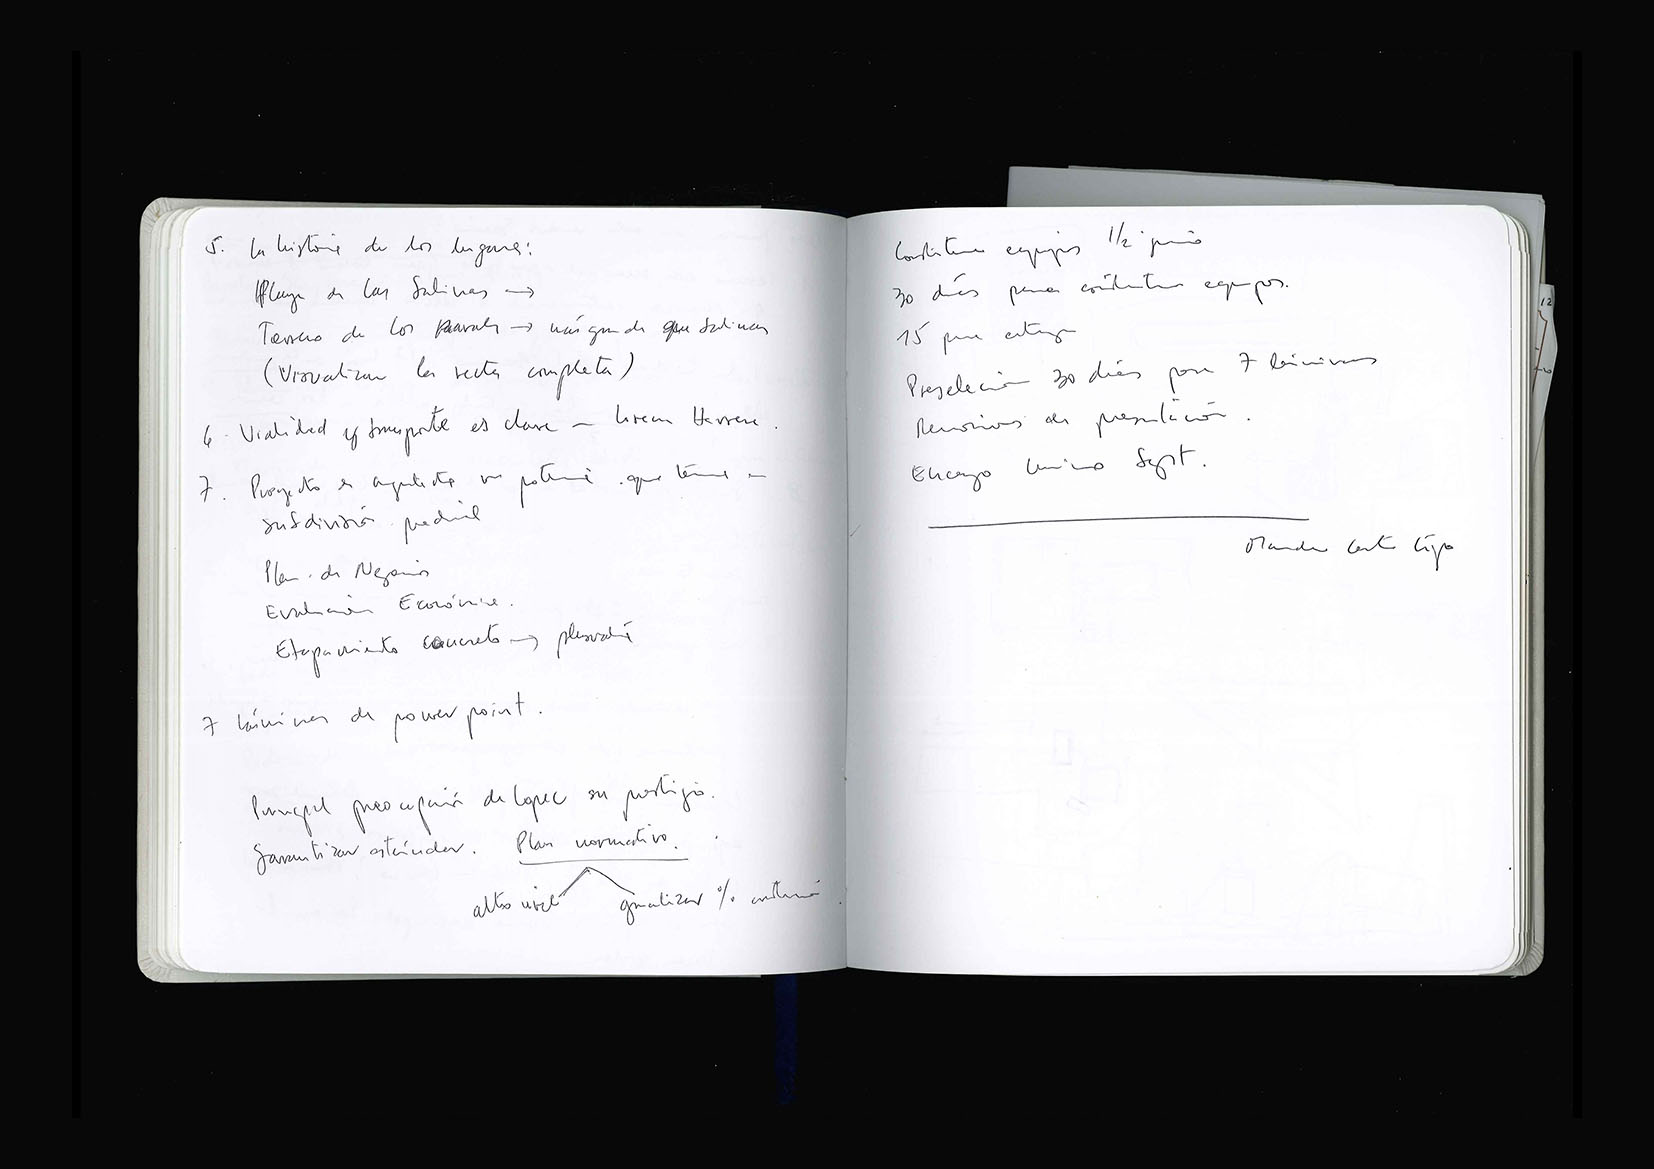 5. La historia de los lugares:
Playa de las Salinas →
Terreno de los → más grande que Salinas
(Visualizar la recta completa)
6. Vialidad y transporte es clave –
7. Proyecto es arquitecto que
subdivisión predial
Plan de Negocios
Evaluación Económica.
Etapamiento concreto → plusvalía
7 láminas de power point.
Principal preocupación de Copec su prestigio.
Garantizar estándar. Plan normativo.
alto nivel %
Constituir equipos 1/2 junio
30 días para constituir equipos.
15 para entrega
Preselección 30 días para 7 láminas
Reuniones de presentación.
Encargo Sept.
Mandar carta
12